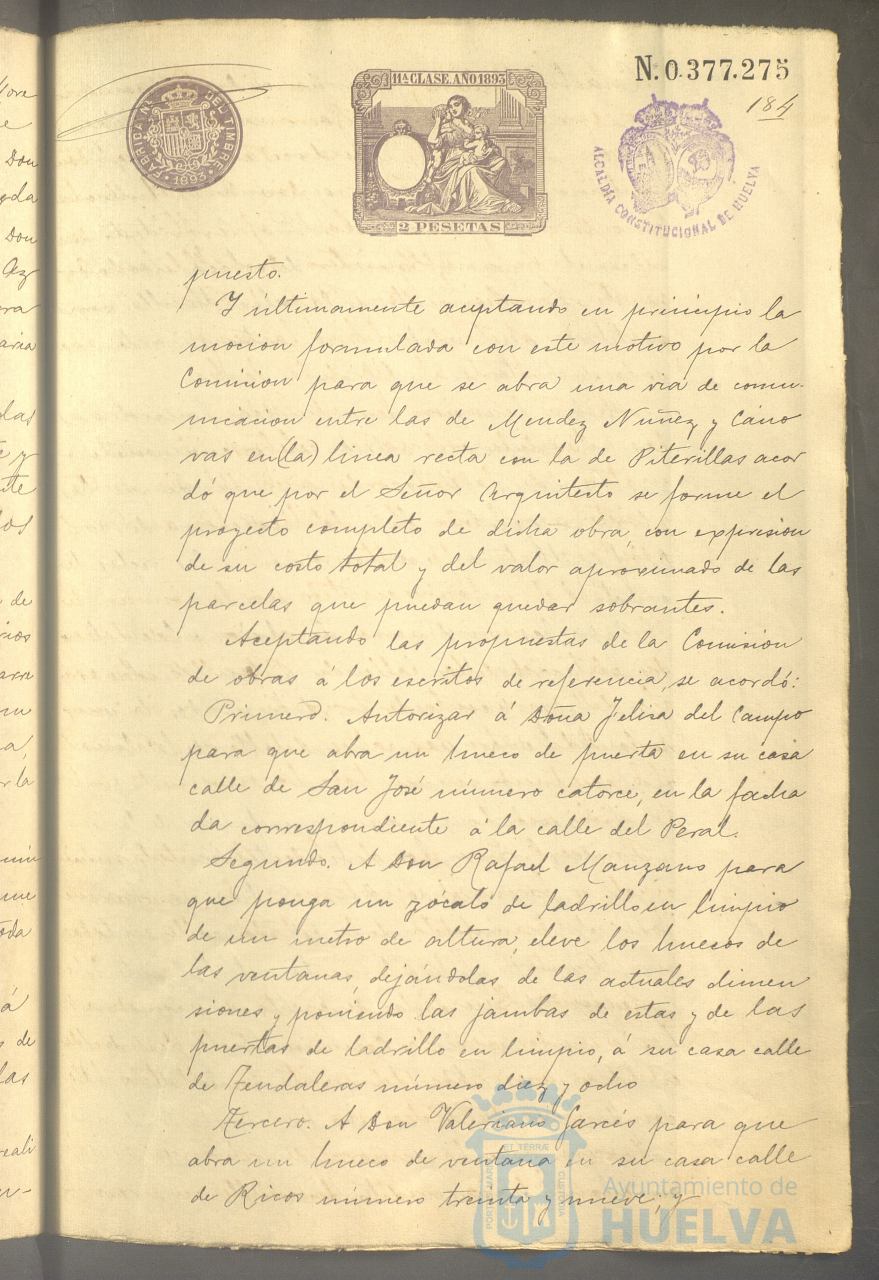 N. 0.377.275
184
11ª CLASE. AÑO 1893
FABRICA Nˡ DEL TIMBRE
1893
2 PESETAS
ALCALDIA CONSTITUCIONAL DE HUELVA
puesto.
Y últimamente aceptando en principio la
mocion formulada con este motivo por la
Comision para que se abra una via de comu-
nicacion entre las de Mendez Nuñez y Cáno
vas en (la) linea recta con la de Piterillas acor
dó que por el Señor Arquitecto se forme el
proyecto completo de dicha obra, con expresion
de su costo total y del valor aproximado de las
parcelas que puedan quedar sobrantes.
Aceptando las propuestas de la Comision
de obras á los escritos de referencia, se acordó:
Primero. Autorizar á Doña Felisa del Campo
para que abra un hueco de puerta en su casa
calle de San José número catorce, en la facha
da correspondiente á la calle del Peral.
Segundo. A Don Rafael Manzano para
que ponga un zócalo de ladrillo en limpio
de un metro de altura, eleve los huecos de
las ventanas, dejándolas de las actuales dimen
siones y poniendo las jambas de estas y de las
puertas de ladrillo en limpio, á su casa calle
de Tendaleras número diez y ocho
Tercero. A Don Valeriano Garcés para que
abra un hueco de ventana en su casa calle
de Ricos número treinta y nueve; y
Ayuntamiento de
HUELVA